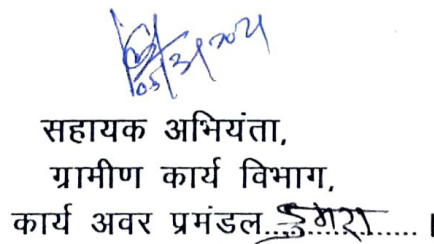 सहायक अभियंता,
ग्रामीण कार्य विभाग,
कार्य अवर प्रमंडल..डुमरा..........।